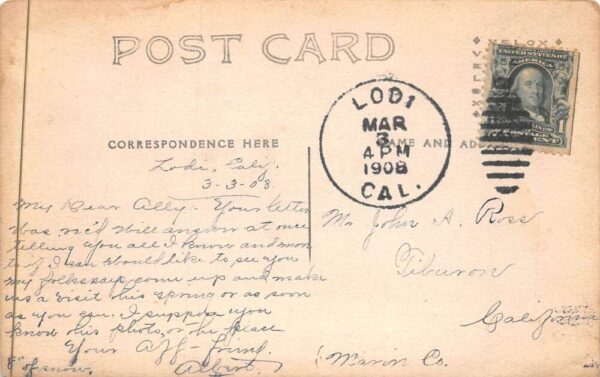 POST CARD
VELOX
VELOX
UNITED STATES OF
AMERICA
1
LODI
MAR
3
4 PM
1908
CAL.
CORRESPONDENCE HERE
NAME AND AD
Lodi, Calif.
3-3-08.
My Dear Ally:- Your letter
was rec'd will answer at once
telling you all I know and more
to if I can should like to see you
my folks says come up and make
us a visit this spring or as soon
as you can. I suppose you
know this photo, or the place
Your Aff- friend.
8" of snow. Albert.
Mr John A. Ross
Tiburon
California
Marin Co.